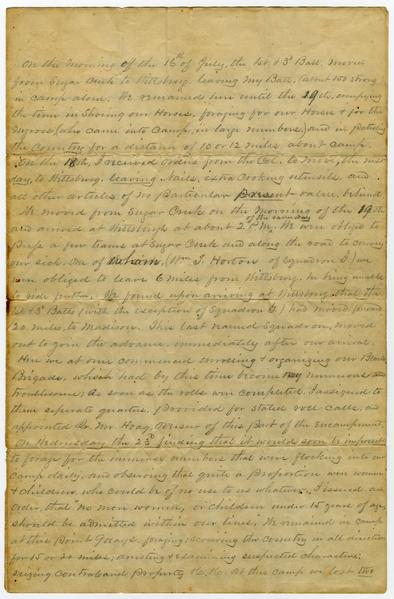 On the Morning of the 16th of July, the 1st & 3d Batt, moved
from Sugar Creek to Wittsburg, leaving My Batt, (about 150 strong
in camp alone. We remained here until the 19th, occupying
the time in Shoeing our Horses, foraging for our Horses & for the
Negroes (who came into Camp, in large numbers,) and in
the Country for a distance of 10 or 12 miles about camp.
On the 18th, I received orders from the Col. to Move, the next
day, to Wittsburg, leaving Nails, extra Cooking utensils, and
all other articles of No Particular present value, behind.
We moved from Sugar Creek on the Morning of the 19th
and arrived at Wittsburgh at about 2 P.M. of the same day We were obliged to
press a few teams at Sugar Creek and along the road to convey
our sick. One of whom, (Wm J. Horton of Squadron I) we
were obliged to leave 6 miles from Wittsburg, he being unable
to ride further. We found upon arriving at Wittsburg that the
1st & 3d Batts (with the exception of Squadron ) had moved forward
20 miles to Madison. This last named Squadron, moved
out to join the advance immediately after our arrival.
Here we at once commenced enrolling & organizing our Black
Brigade, which had by this time become very numerous and
troublesome; As soon as the rolls were completed, I assigned to
them separate quarters, Provided for stated roll calls, and
appointed Mr. Hoag, Overseer of this Part of the Encampment.
On Wednesday the 23d finding that it would soon be impossible
to forage for the immense numbers that were flocking into our
camp daily, and observing that quite a proportion were women
& children, who could be of no use to us whatever, I issued an
order, that No more women, or children under 15 years of age,
should be admitted within our lines. We remained in camp
at this Point 9 days, foraging; scouring the Country in all directions
for 15 or 20 miles; arresting & examining suspected characters;
seizing Contraband Property &c. &c. At this camp we lost two